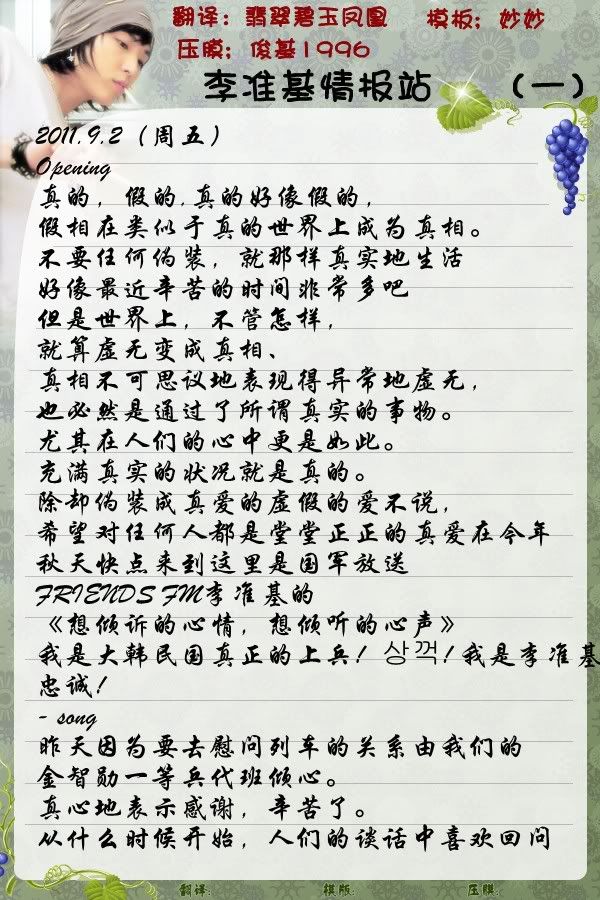 翻译：翡翠碧玉凤凰 模板：妙妙
压膜：俊基1996
李准基情报站 （一）
2011.9.2（周五）
Opening
真的，假的.真的好像假的，
假相在类似于真的世界上成为真相。
不要任何伪装，就那样真实地生活
好像最近辛苦的时间非常多吧
但是世界上，不管怎样，
就算虚无变成真相、
真相不可思议地表现得异常地虚无，
也必然是通过了所谓真实的事物。
尤其在人们的心中更是如此。
充满真实的状况就是真的。
除却伪装成真爱的虚假的爱不说，
希望对任何人都是堂堂正正的真爱在今年
秋天快点来到这里是国军放送
FRIENDS FM李准基的
《想倾诉的心情，想倾听的心声》
我是大韩民国真正的上兵！상꺽！我是李准基
忠诚！
- song
昨天因为要去慰问列车的关系由我们的
金智勋一等兵代班倾心。
真心地表示感谢，辛苦了。
从什么时候开始，人们的谈话中喜欢回问
翻译： 模版： 压膜：